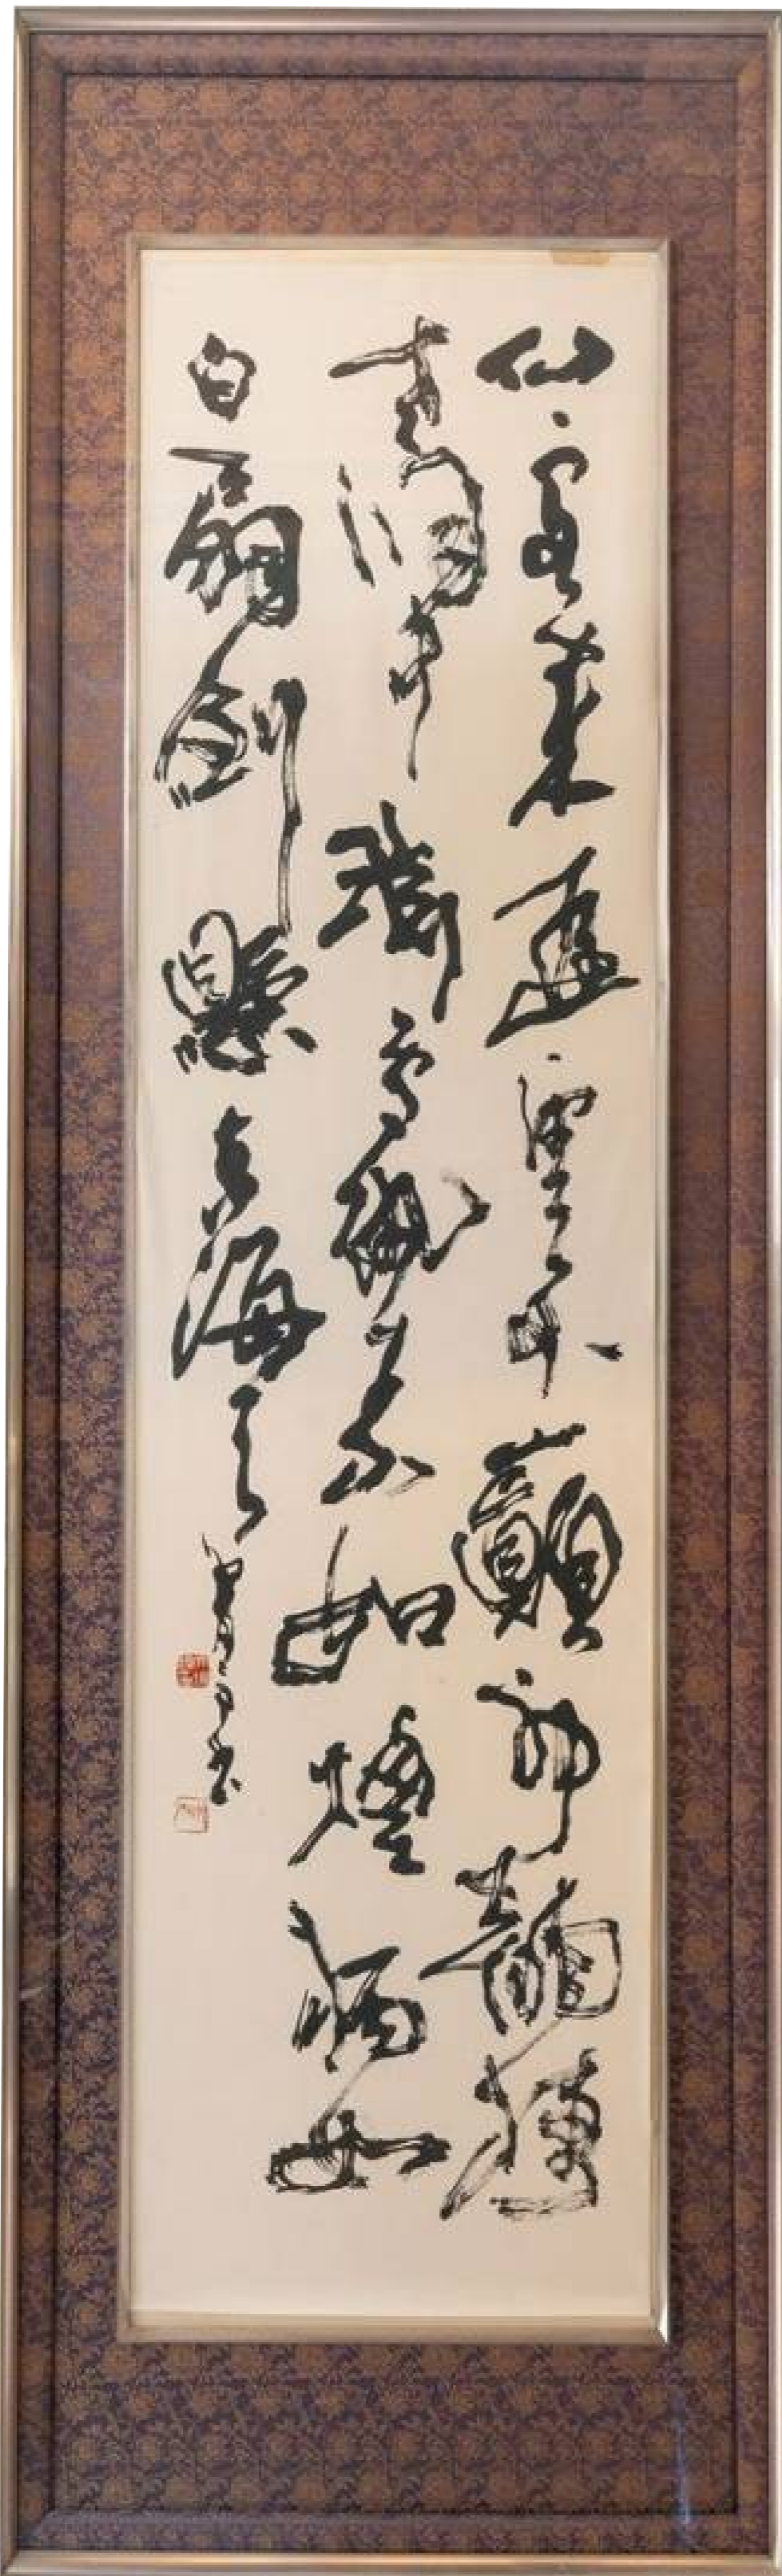 仙客来遊雲外巓神龍棲
老洞中淵雪紈素如煙柄如
白扇倒懸東海天
書